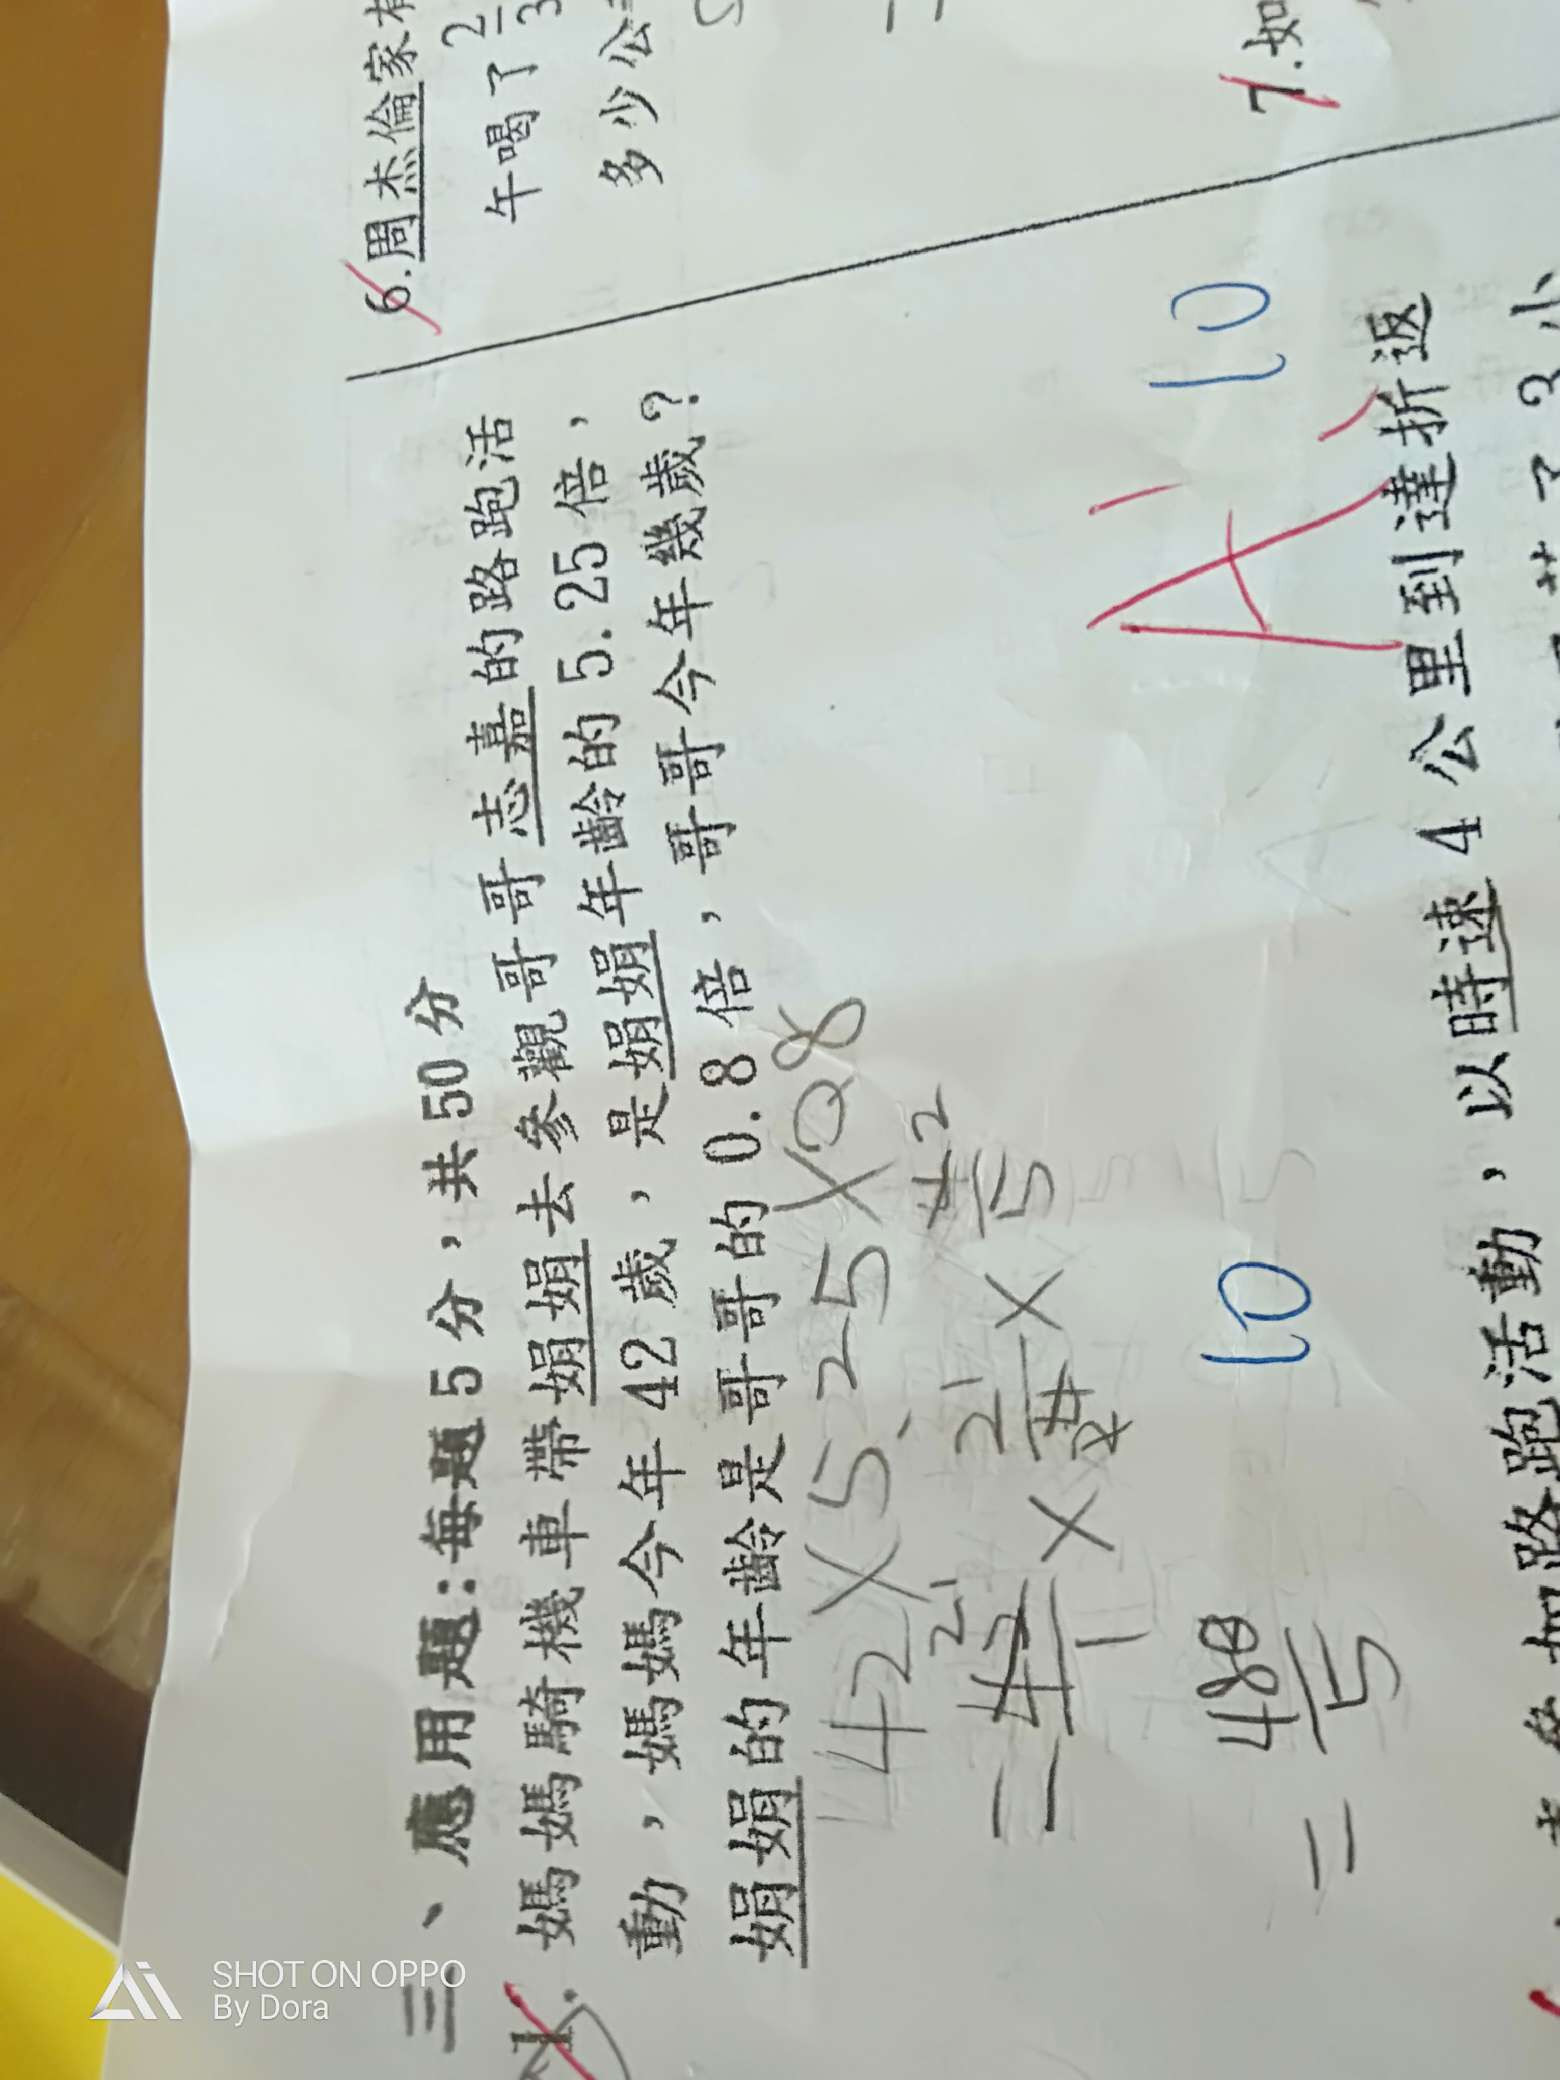 三、應用題:每題5分,共50分
1.媽媽騎機車帶娟娟去參觀哥哥志嘉的路跑活
動,媽媽今年42歲,是娟娟年齡的5.25倍,
娟娟的年齡是哥哥的0.8倍,哥哥今年幾歲?
42×5.25×0.8
21 21 42
= 42/1 × 21/4 × 4/5
2
= 488/5
10
10
A
以時速4公里到達折返
參加路跑活動,
6.周杰倫家有
午喝了2/3
多少公
7.如
SHOT ON OPPO
By Dora